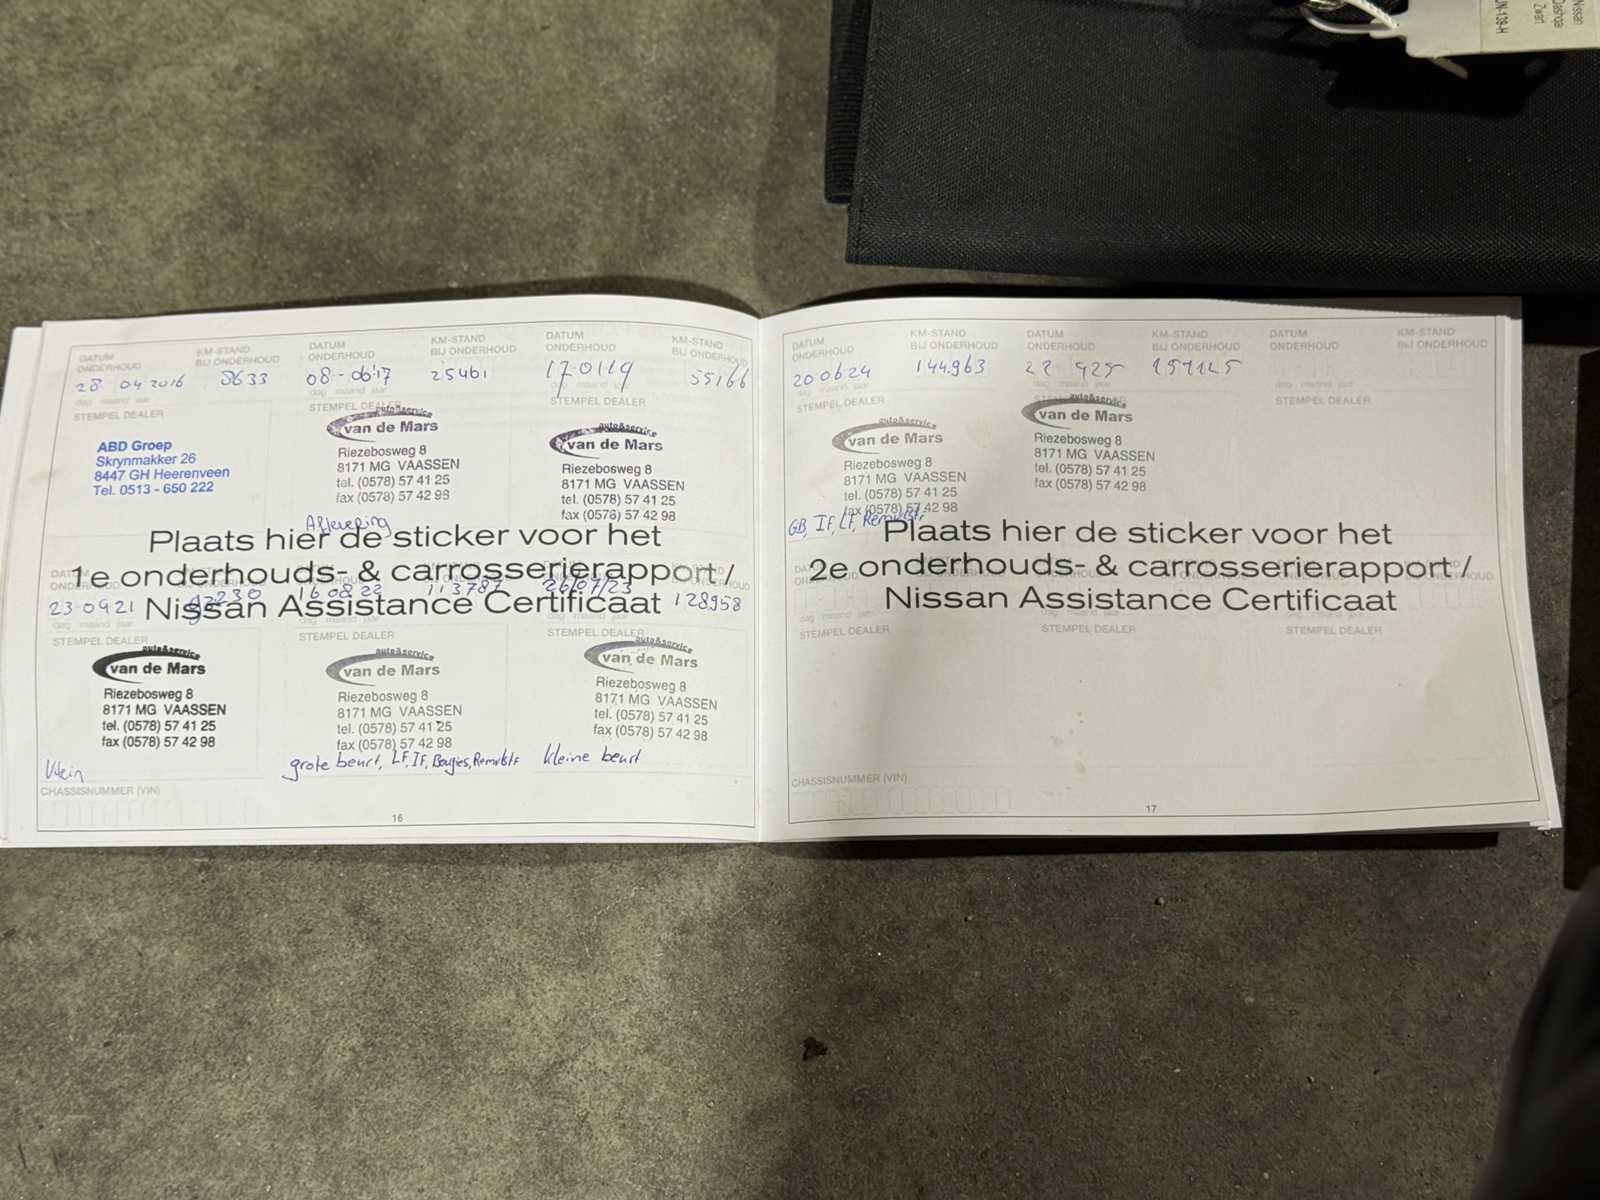 Nissan
Qashqai
Zwart
DATUM ONDERHOUD
KM-STAND BIJ ONDERHOUD
DATUM ONDERHOUD
KM-STAND BIJ ONDERHOUD
DATUM ONDERHOUD
KM-STAND BIJ ONDERHOUD
28 04 2016
8633
08-06'17
25461
17-01-19
55166
dag maand jaar
dag maand jaar
dag maand jaar
STEMPEL DEALER
STEMPEL DEALER
STEMPEL DEALER
ABD Groep
Skrynmakker 26
8447 GH Heerenveen
Tel. 0513 - 650 222
auto&service
van de Mars
Riezebosweg 8
8171 MG VAASSEN
tel. (0578) 57 41 25
fax (0578) 57 42 98
Aflevering
auto&service
van de Mars
Riezebosweg 8
8171 MG VAASSEN
tel. (0578) 57 41 25
fax (0578) 57 42 98
Plaats hier de sticker voor het
1e onderhouds- & carrosserierapport /
Nissan Assistance Certificaat
23-09-21
16 08 22
113787
26/07/23
128958
STEMPEL DEALER
STEMPEL DEALER
STEMPEL DEALER
auto&service
van de Mars
Riezebosweg 8
8171 MG VAASSEN
tel. (0578) 57 41 25
fax (0578) 57 42 98
Klein
auto&service
van de Mars
Riezebosweg 8
8171 MG VAASSEN
tel. (0578) 57 41 25
fax (0578) 57 42 98
grote beurt, LF, IF, Bougies, Remvlstf
auto&service
van de Mars
Riezebosweg 8
8171 MG VAASSEN
tel. (0578) 57 41 25
fax (0578) 57 42 98
kleine beurt
CHASSISNUMMER (VIN)
16
DATUM ONDERHOUD
KM-STAND BIJ ONDERHOUD
DATUM ONDERHOUD
KM-STAND BIJ ONDERHOUD
DATUM ONDERHOUD
KM-STAND BIJ ONDERHOUD
20 06 24
144.963
22 9 25
dag maand jaar
dag maand jaar
STEMPEL DEALER
STEMPEL DEALER
auto&service
van de Mars
Riezebosweg 8
8171 MG VAASSEN
tel. (0578) 57 41 25
fax (0578) 57 42 98
GB, IF, LF, Remvlstf
auto&service
van de Mars
Riezebosweg 8
8171 MG VAASSEN
tel. (0578) 57 41 25
fax (0578) 57 42 98
Plaats hier de sticker voor het
2e onderhouds- & carrosserierapport /
Nissan Assistance Certificaat
STEMPEL DEALER
STEMPEL DEALER
STEMPEL DEALER
CHASSISNUMMER (VIN)
17